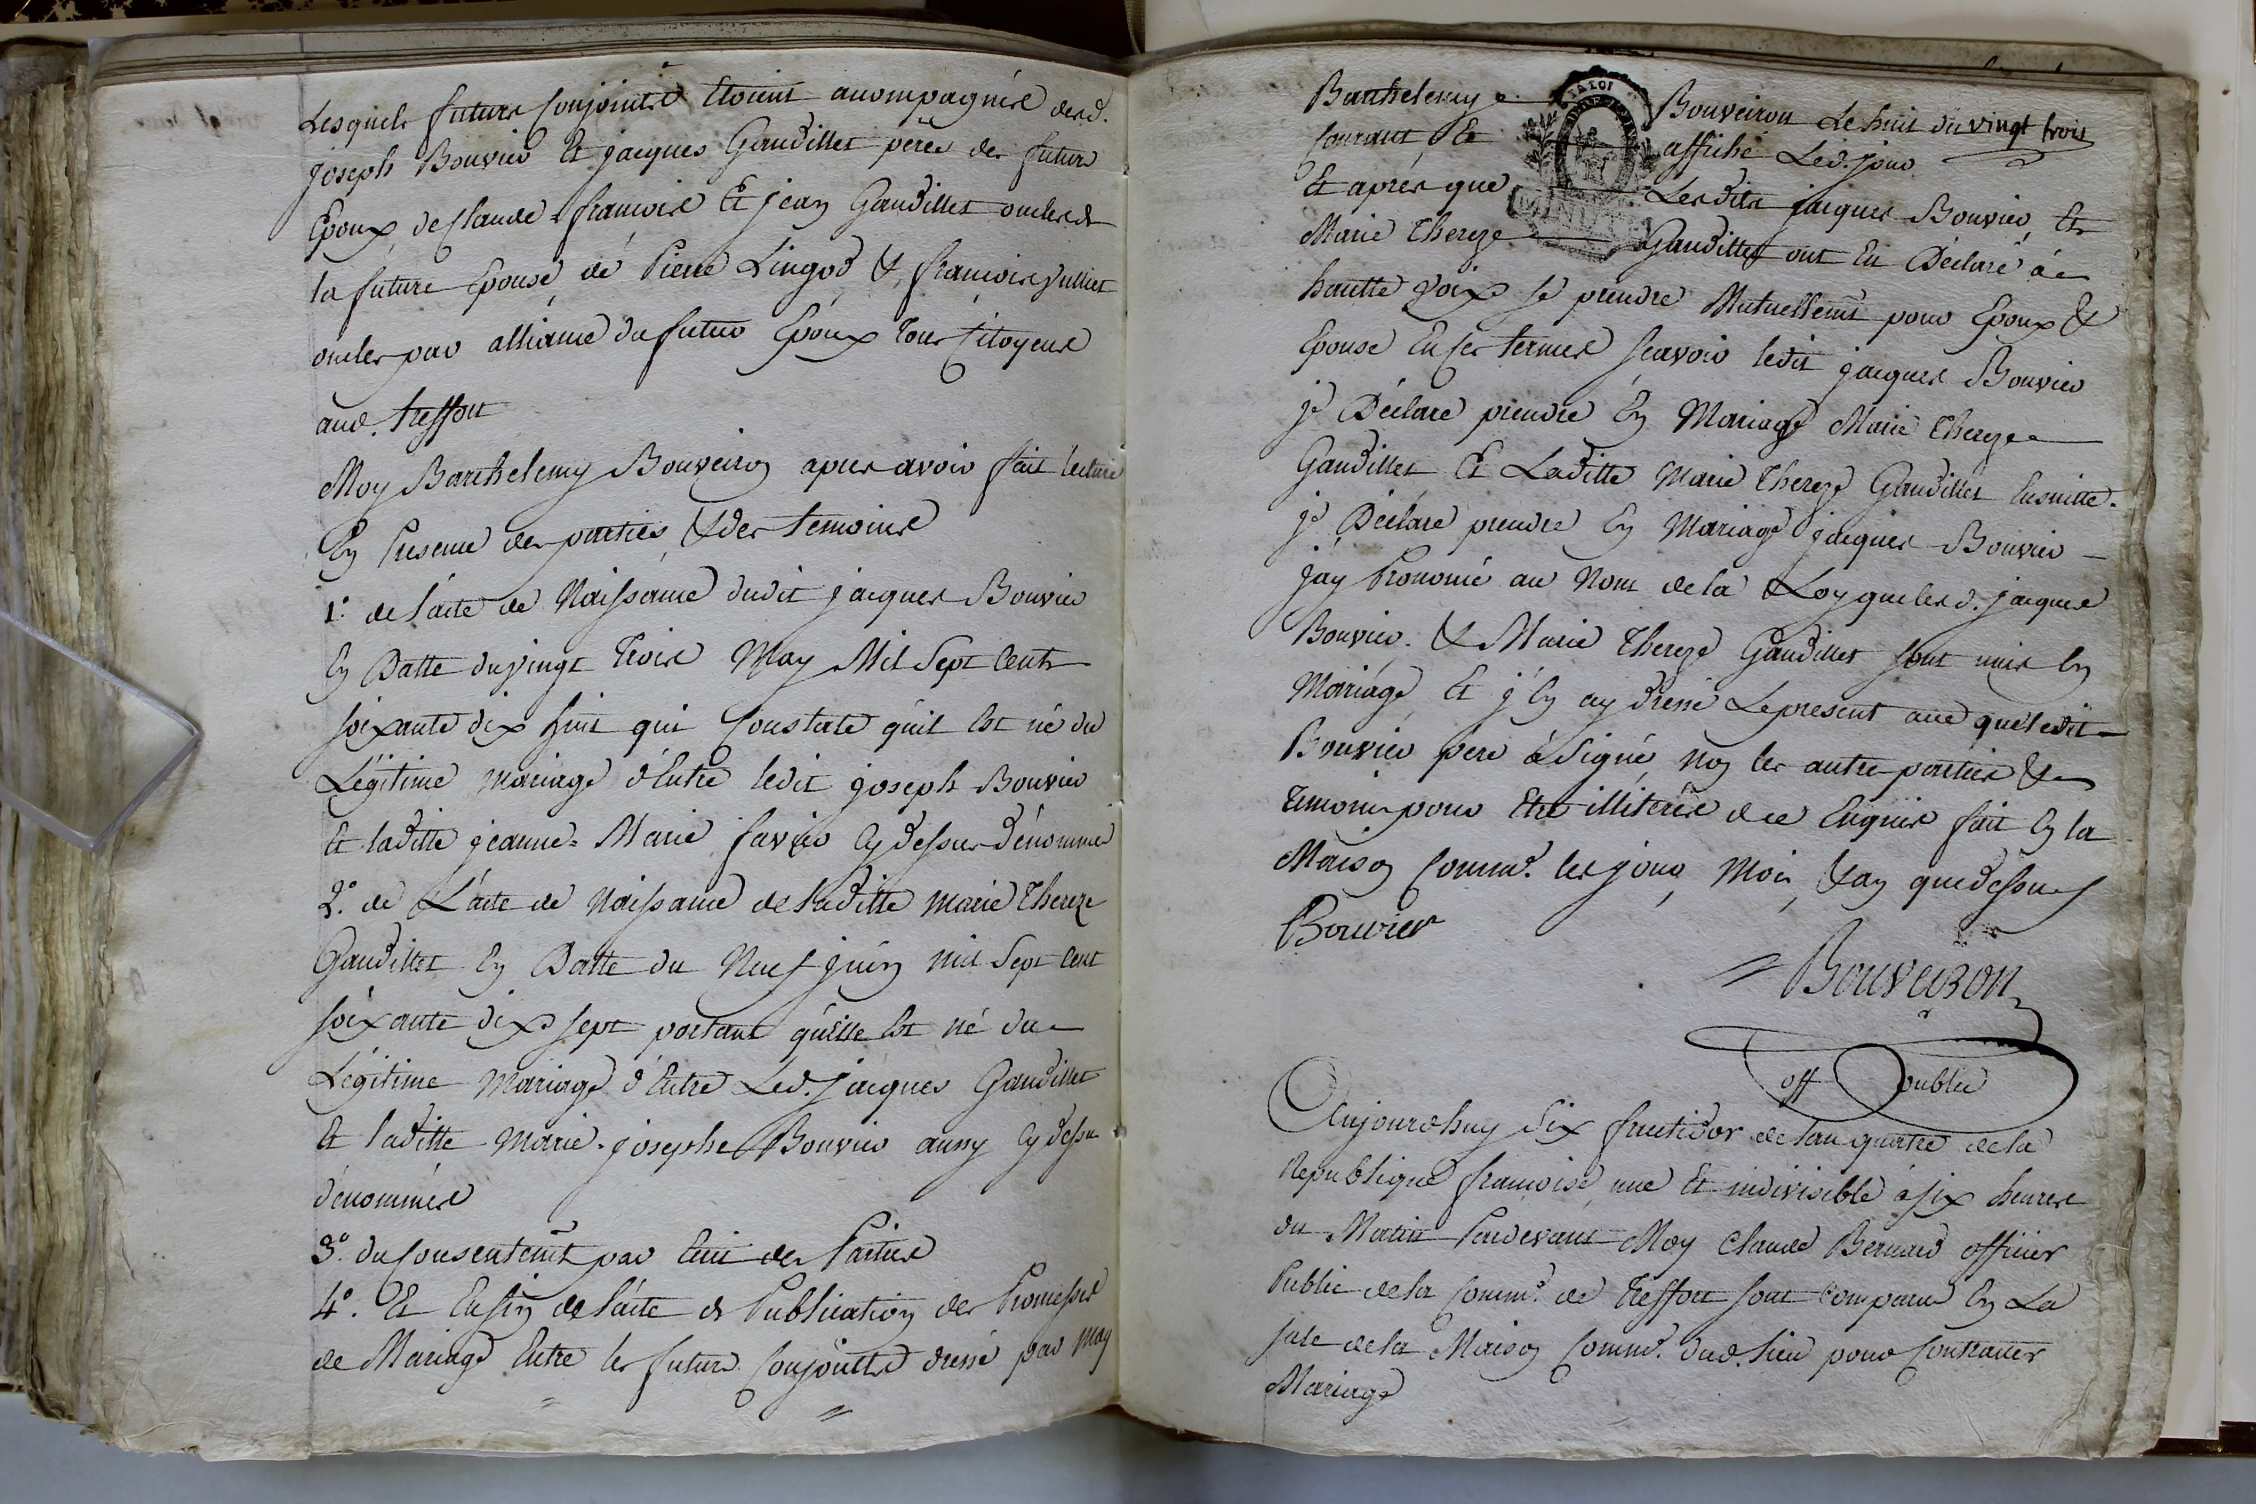 Lesquels futurs conjointes Etoient acompagnés desd.
joseph Bouvier Et jacques Gaudillet pères des futurs
Epoux, de Claude-françois Et jean Gaudillet oncles de
la future Epouse de Pierre Lingod & françois vulliet
oncles par alliance du futur Epoux tous Citoyens
aud. treffort
Moy Barthelemy Bouveiron apres avoir fait lecture
En presence des parties & des temoins
1.° de l'acte de Naissance dudit jacques Bouvier
En Datte du vingt Trois May Mil Sept Cents
soixante dix huit qui Constate qu'il Est né du
Légitime mariage d'Entre ledit joseph Bouvier
Et laditte jeanne-Marie favier Cy dessus Dénommés
2.° de L'acte de Naissance de laditte marie Thereze
Gaudillet En Datte du Neuf juin mil Sept Cent
soixante dix sept portant qu'elle Est né du
Légitime Mariage d'Entre Led. jacques Gaudillet
Et laditte Marie-josephe Bouvier aussy Cy dessus
dénommés
3.° du Consentemt par Ecrit des Parties
4.° Et Enfin de l'acte de Publication des Promesses
de Mariage Entre les futurs Conjointes dressé par moy
Barthelemy Bouveiron Le huit du vingt trois
Courant Et affiché Led. jour
Et après que Lesdits jacques Bouvier Et
Marie Thereze Gaudillet ont Eu Déclaré à
hautte voix se prendre Mutuellemt pour Epoux &
Epouse En ces termes scavoir ledit jacques Bouvier
je Déclare prendre En Mariage Marie Thereze
Gaudillet Et Laditte Marie Thereze Gaudillet Ensuitte
je Déclare prendre En Mariage jacques Bouvier
j'ay Prononcé au Nom de la Loy que lesd. jacques
Bouvier & Marie Thereze Gaudillet sont unis En
Mariage Et j'En ay dressé Le present acte que ledit
Bouvier père à Signé non les autre parties &
temoins pour Etre illiterés de ce Enquis fait En la
Maison Commne. les jour, Mois, & an que dessus
Bouvier
Bouveiron
off public
Aujourdhuy Six fructidor de lan quatre de la
Republique francoise une Et indivisible à six heures
du Matin Pardevant Moy Claude Bernard officier
Public de la Commne. de Treffort sont comparu En La
sale de la Maison Commne. dud. lieu pour Contracter
Mariage